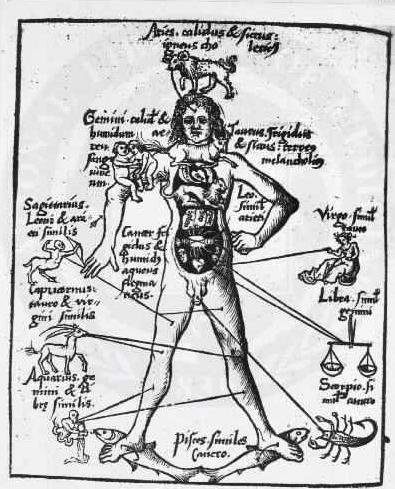 Aries. calidus & siccus.
igneus cho
lericus
Gemini. calid⁹ &
humidum ae-
reu
sangu
Taurus. frigidus
& siccus. terreus
melancholic⁹
Leo.
simil
arieti
Virgo. simil
tauro
Sagittarius.
Leoni & ari
eti similis
Cancer fri
gidus &
humid⁹
aqueus
flegma
ticus.
Capricornus.
tauro & vir-
gini similis
Libra. simil
gemini
Aquarius. ge
mini & li
bre similis.
Scorpio. si
mil cancro
Pisces similes
Cancro.